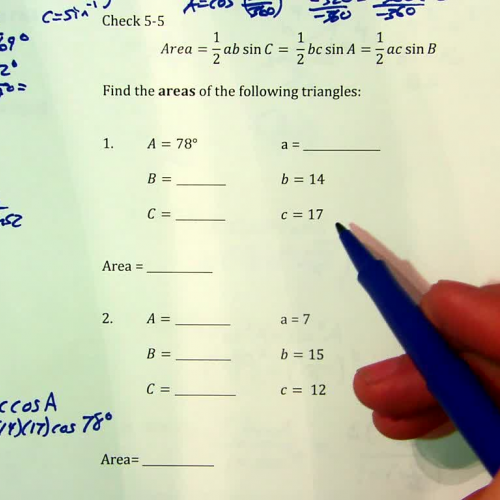 C=sin⁻¹
A=cos
-360
-360
-360
Check 5-5
Area = 1/2 ab sin C = 1/2 bc sin A = 1/2 ac sin B
Find the areas of the following triangles:
1. A = 78° a = ________
B = ______ b = 14
C = ______ c = 17
Area = ________
2. A = ______ a = 7
B = ______ b = 15
C = ______ c = 12
cosA
)(17)cos 78°
Area= ________